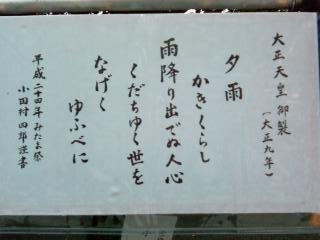 大正天皇御製
(大正九年)
夕雨
かきくらし
雨降り出でぬ人心
くだちゆく世を
なげく
ゆふべに
平成二十四年みたま祭
小田村四郎謹書